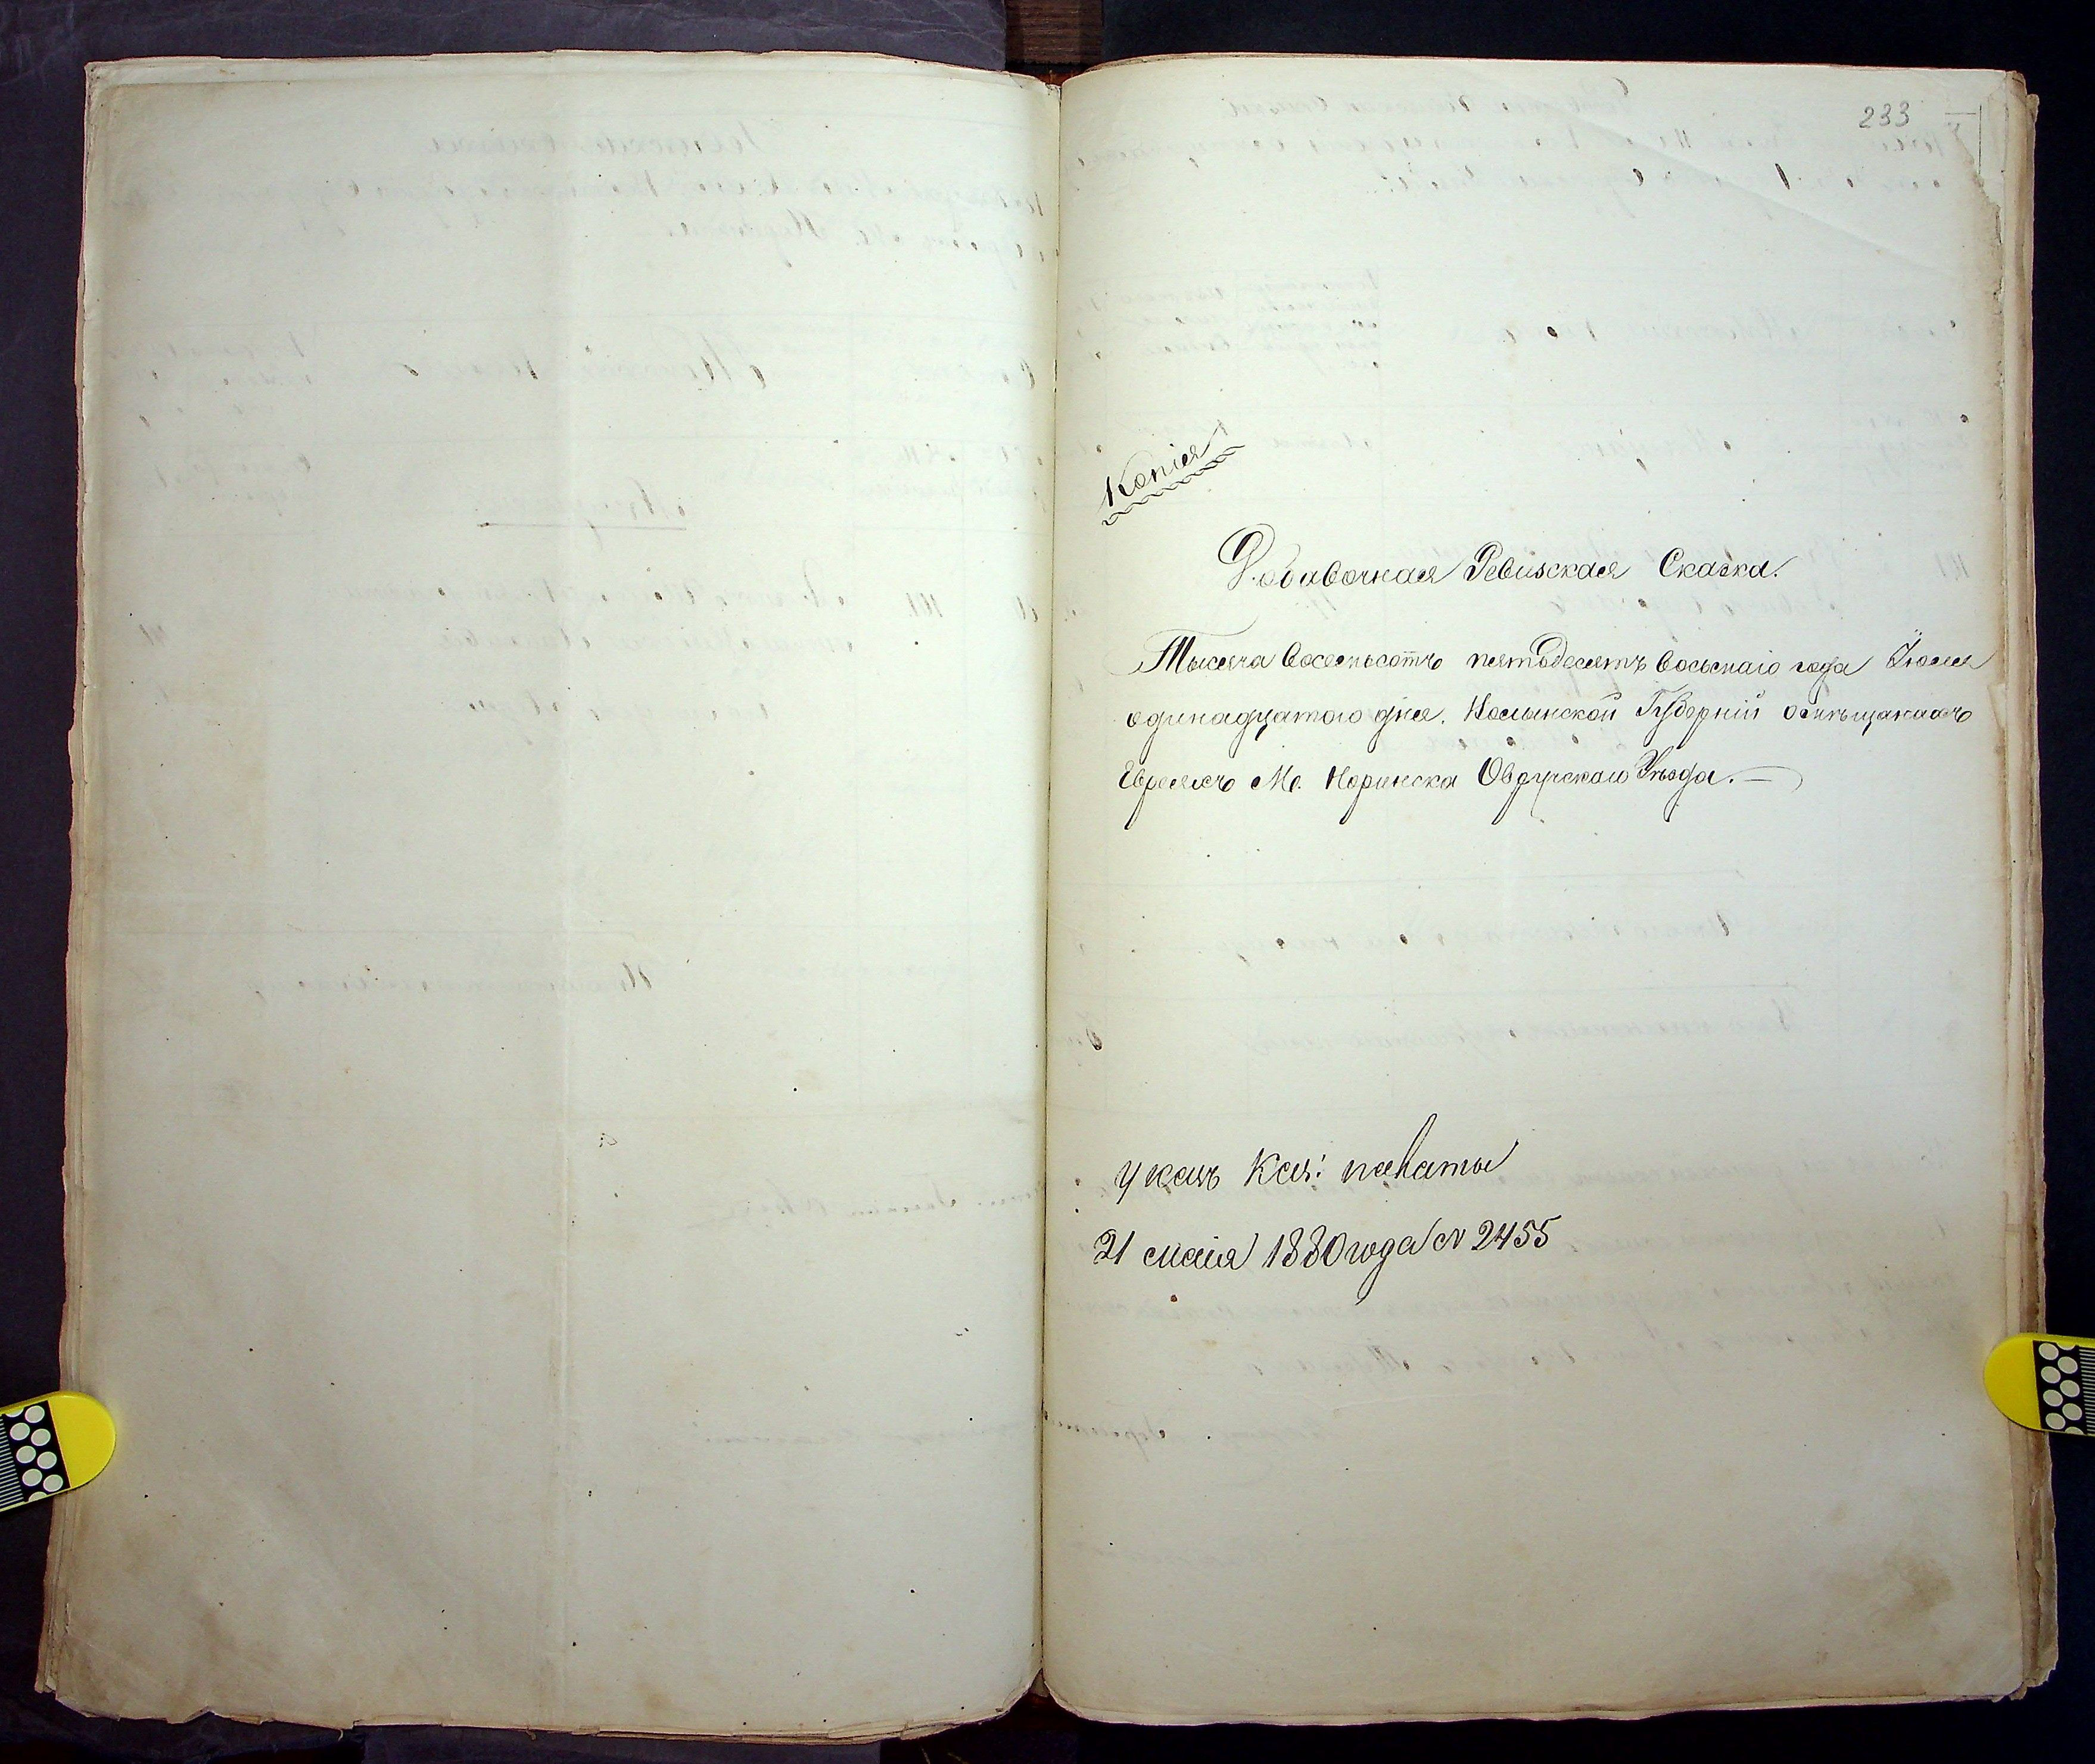 233
Копія
Добавочная Ревизская Сказка.
Тысяча восемьсотъ пятьдесятъ восьмаго года Іюля
одинадцатого дня. Волынской Губерніи о мѣщанахъ
Евреяхъ М. Норинска Овручскаго Уѣзда. —
Указъ Каз: палаты
21 маія 1880 года № 2455